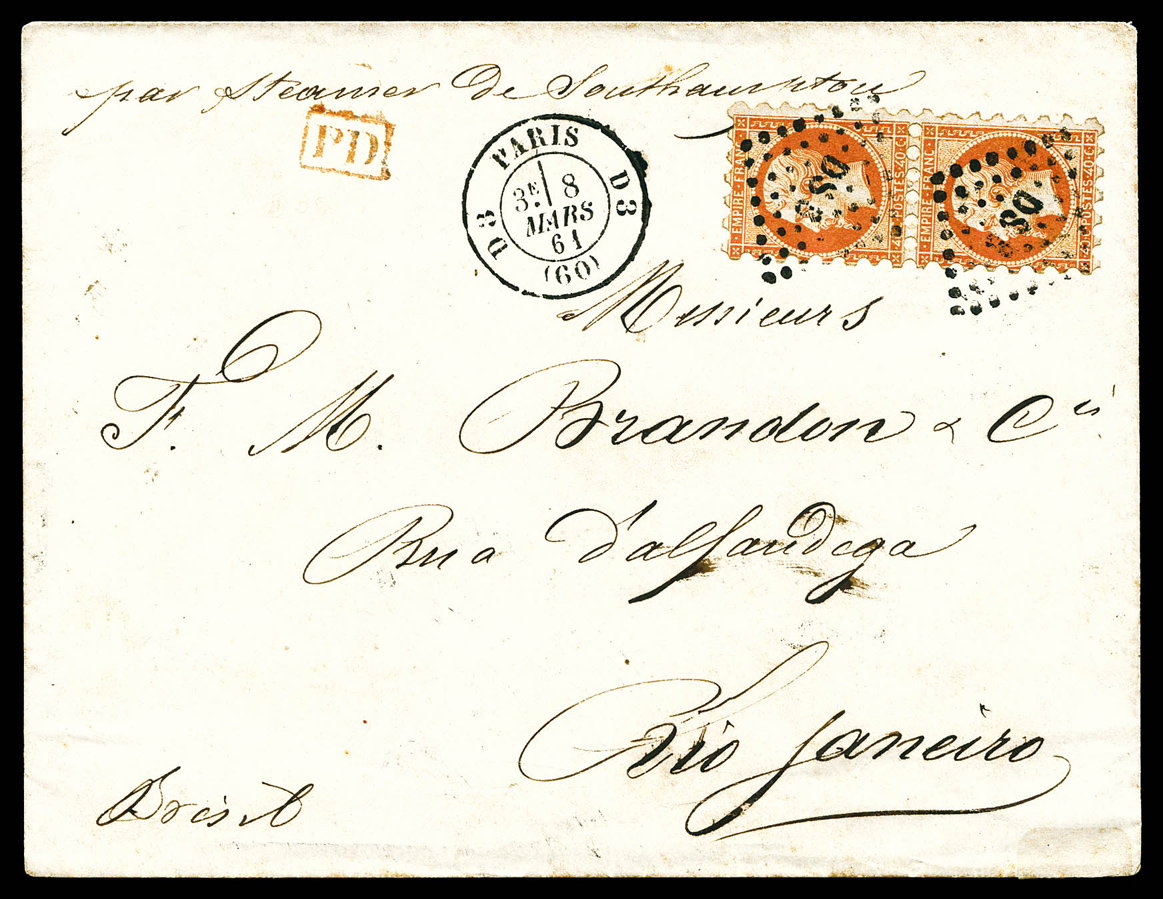 par Steamer de Southampton
PD
PARIS
D3 D3
3E 8
MARS
61
(60)
EMPIRE·FRANC· POSTES·40·C
EMPIRE·FRANC· POSTES·40·C
DS
DS
Messieurs
F. M. Brandon & Cie
Rua d'alfandega
Rio Janeiro
Brésil